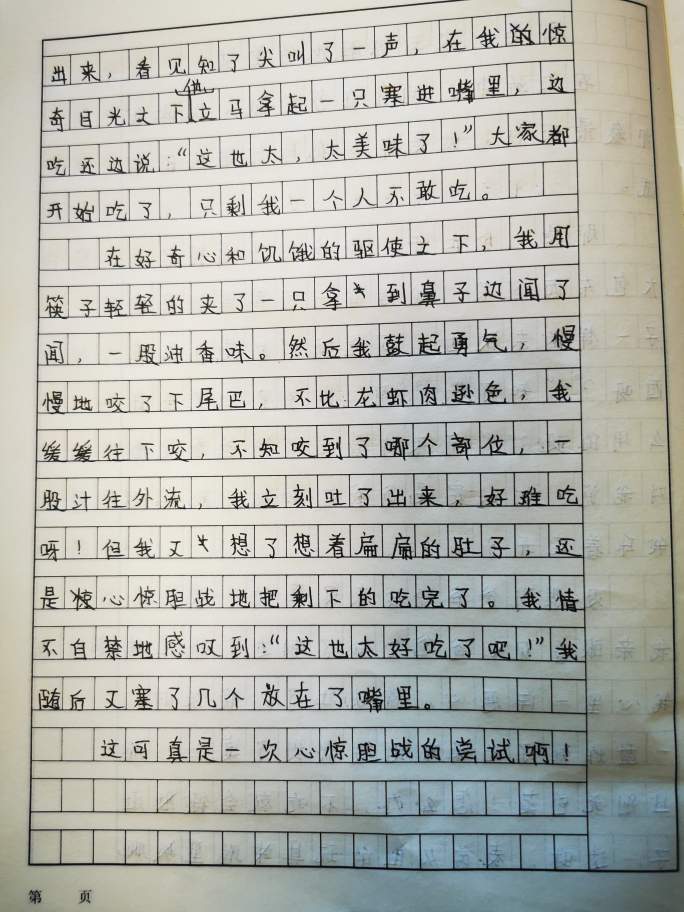 出来，看见知了尖叫了一声，在我的惊
奇目光之下他立马拿起一只塞进嘴里，边
吃还边说：“这也太，太美味了！”大家都
开始吃了，只剩我一个人不敢吃。
在好奇心和饥饿的驱使之下，我用
筷子轻轻的夹了一只拿到鼻子边闻了
闻，一股油香味。然后我鼓起勇气，慢
慢地咬了下尾巴，不比龙虾肉逊色，我
缓缓往下咬，不知咬到了哪个部位，一
股汁往外流，我立刻吐了出来，好难吃
呀！但我又想了想着扁扁的肚子，还
是惊心惊胆战地把剩下的吃完了。我情
不自禁地感叹到：“这也太好吃了吧！”我
随后又塞了几个放在了嘴里。
这可真是一次心惊胆战的尝试啊！
第 页